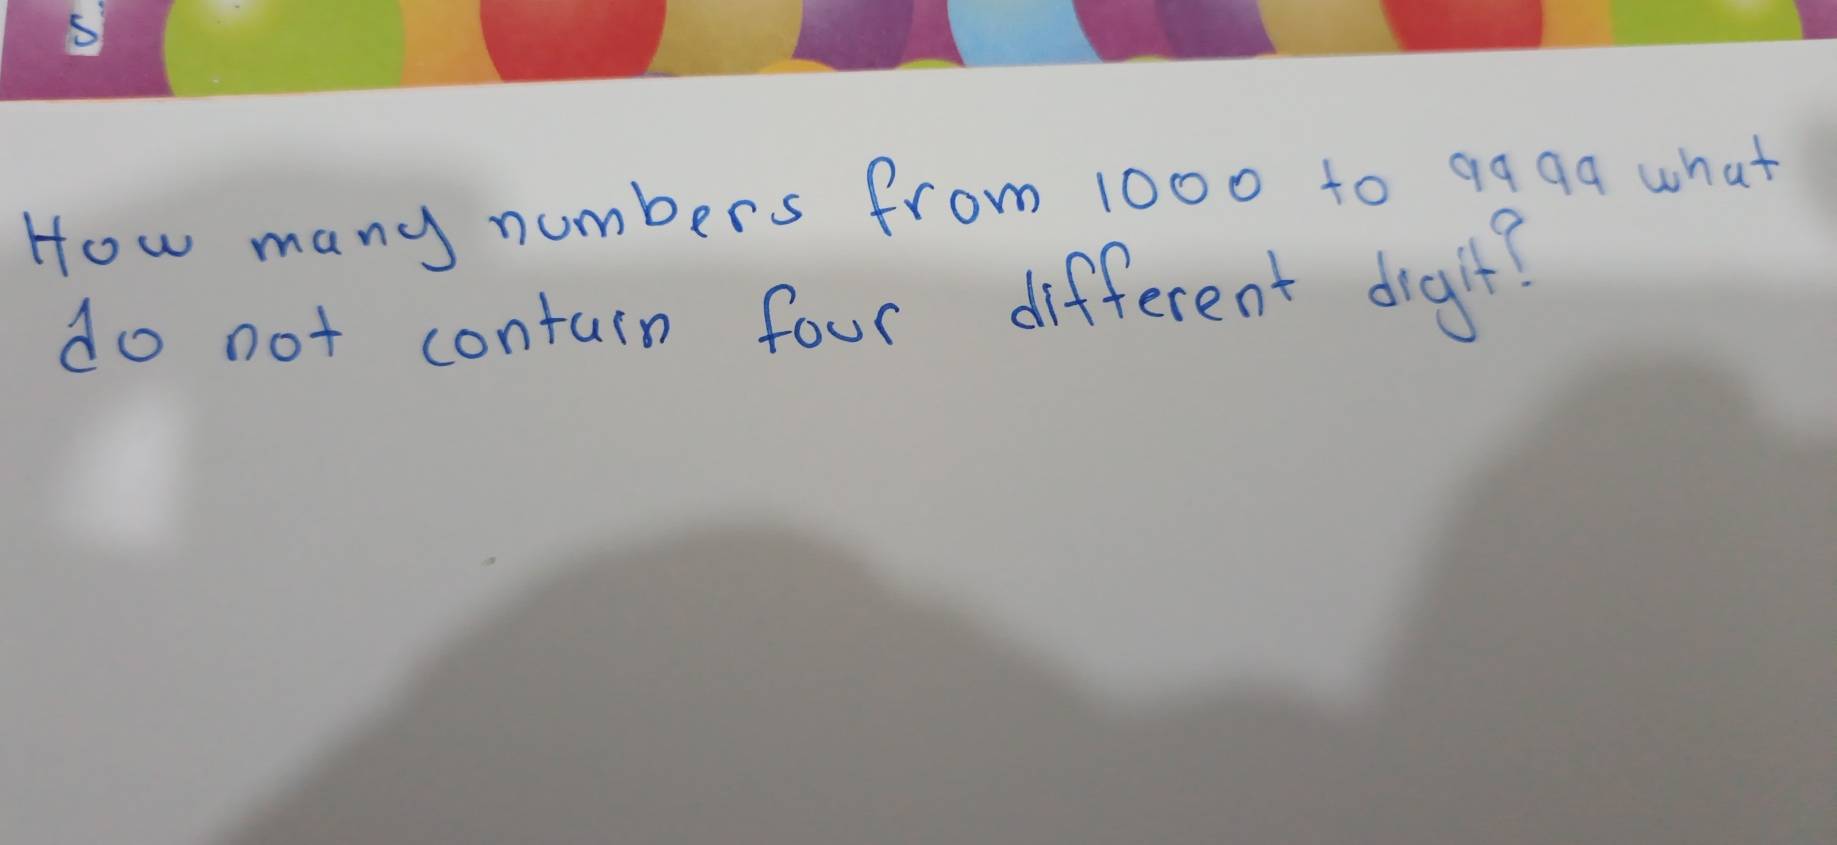 S.
How many numbers from 1000 to 9999 what
do not contain four different digit?